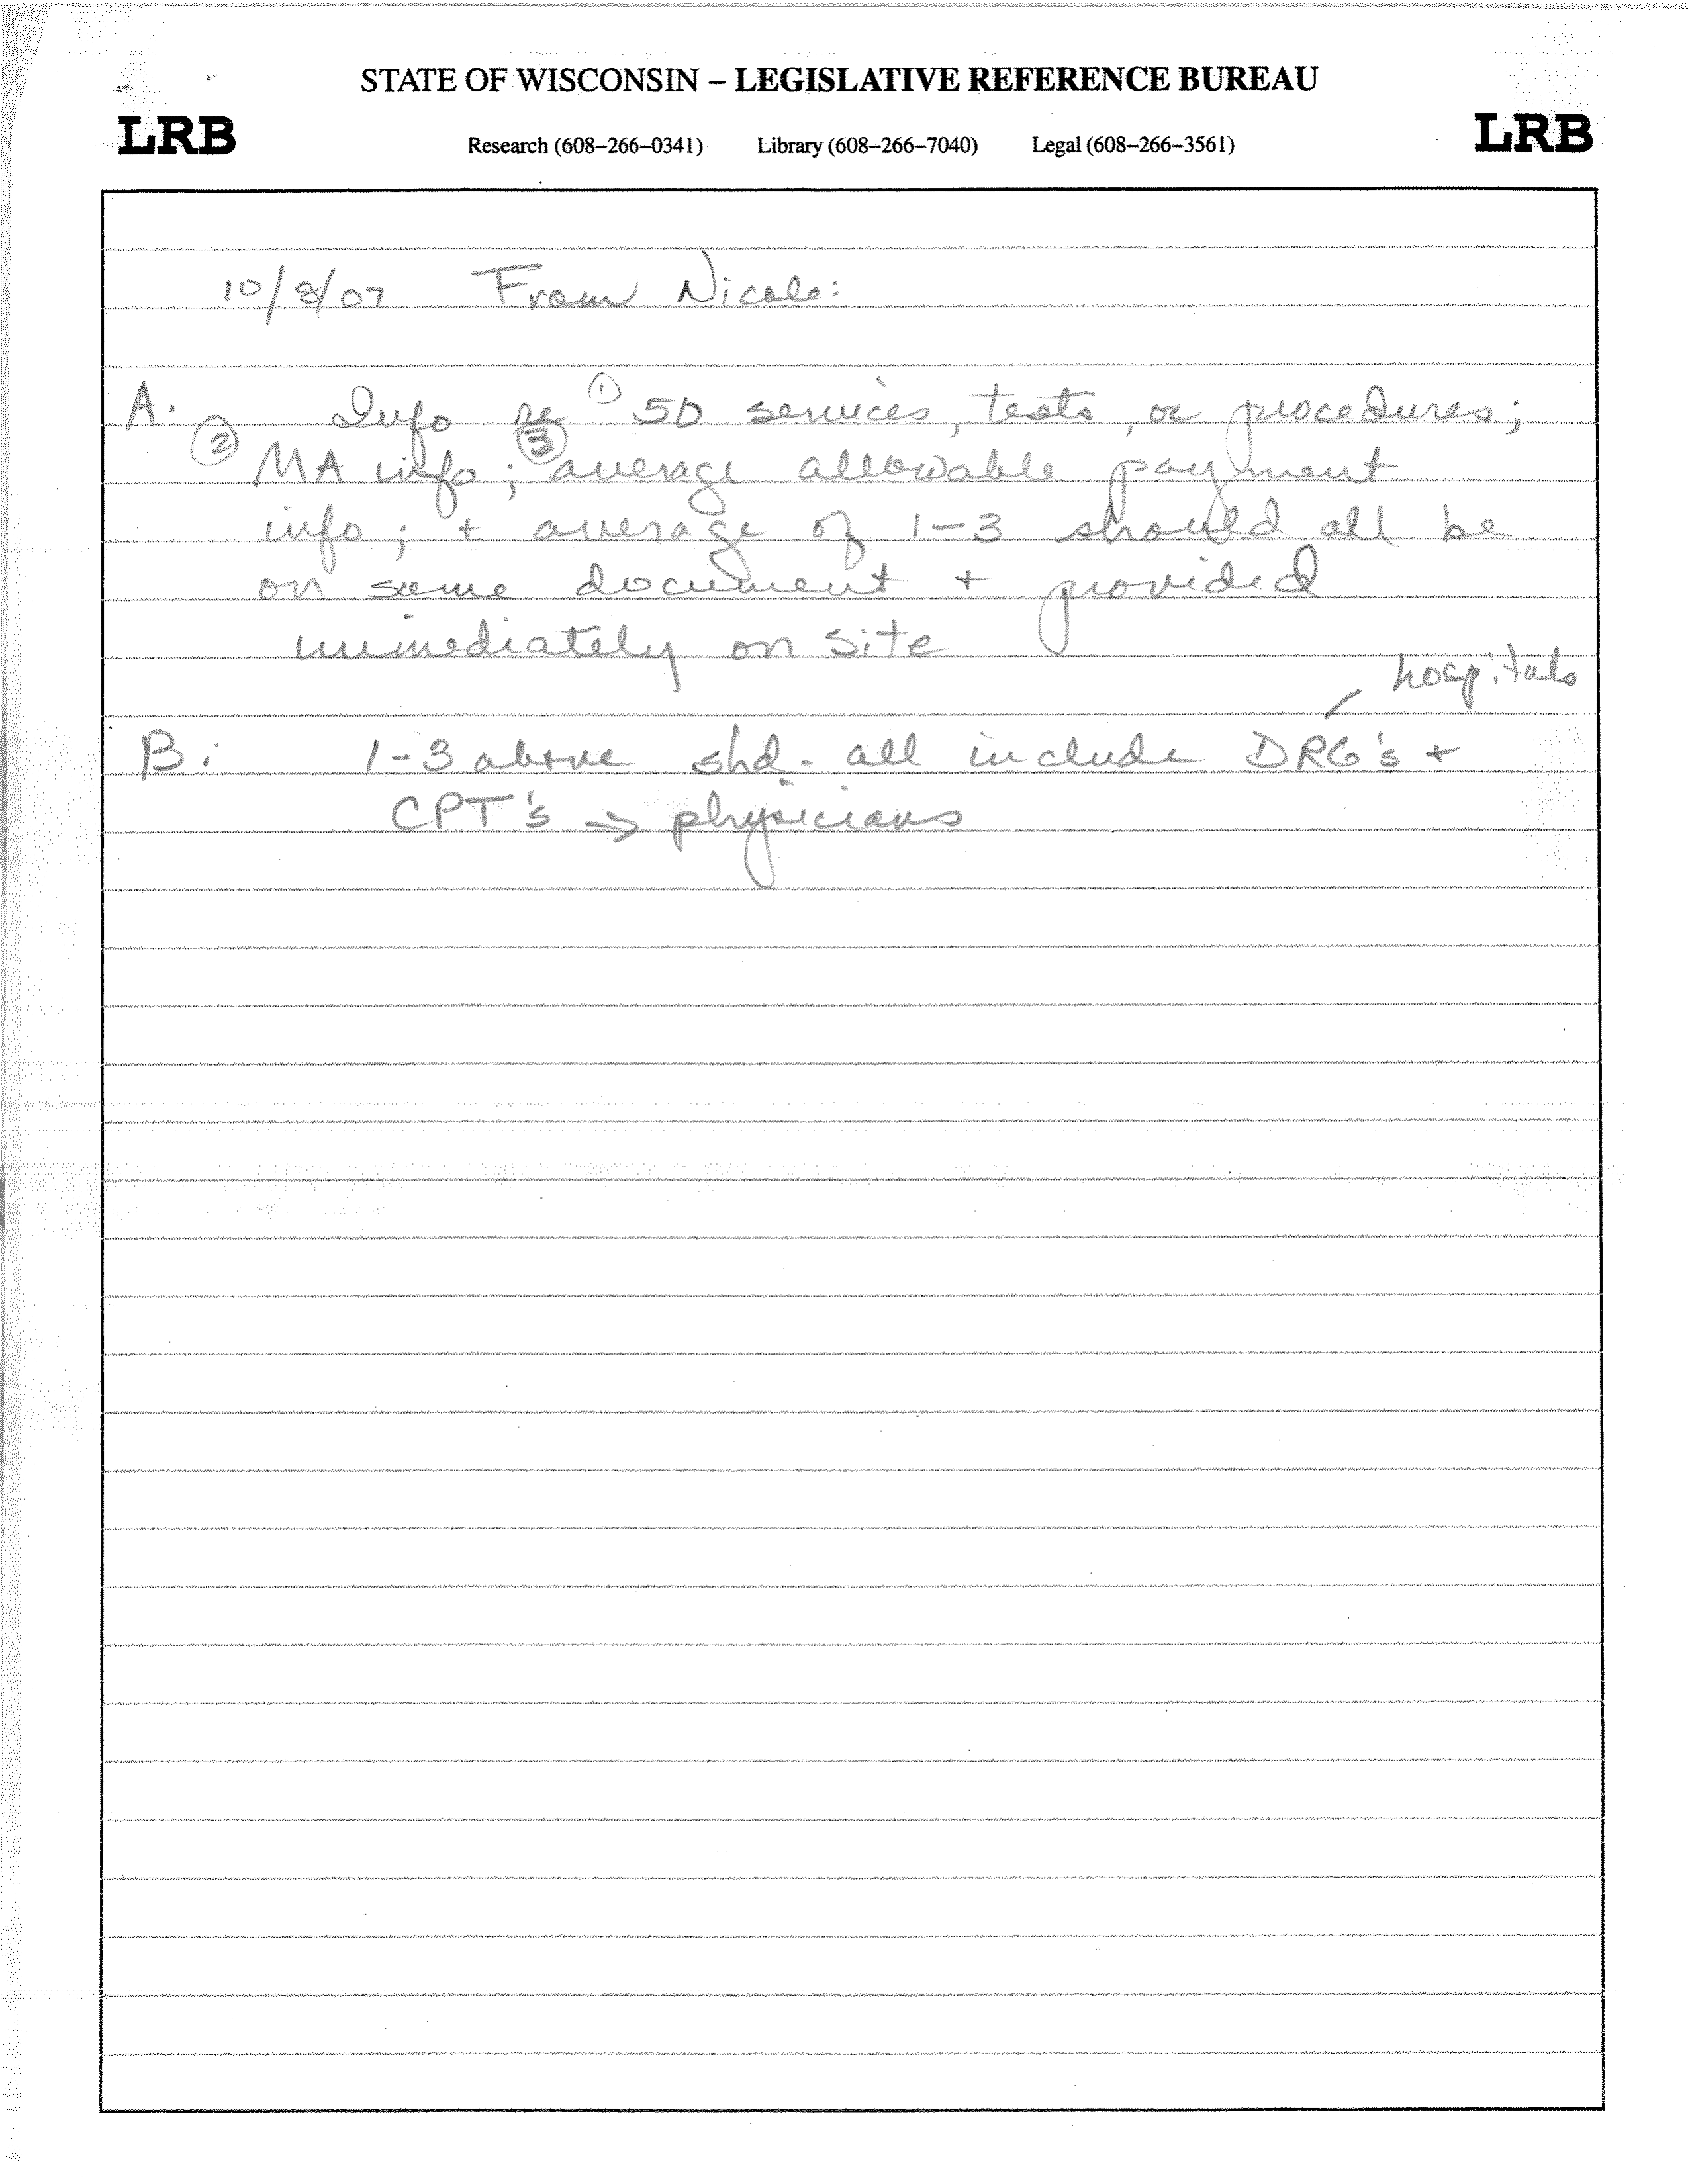 STATE OF WISCONSIN – LEGISLATIVE REFERENCE BUREAU
LRB
LRB
Research (608–266–0341) Library (608–266–7040) Legal (608–266–3561)
10/8/07 From Nicole:
A. Info re ① 50 services, tests, or procedures;
② MA info; ③ average allowable payment
info; + average of 1–3 should all be
on same document + provided
immediately on site
hospitals
B: 1-3 above shd. all include DRG's +
CPT's → physicians